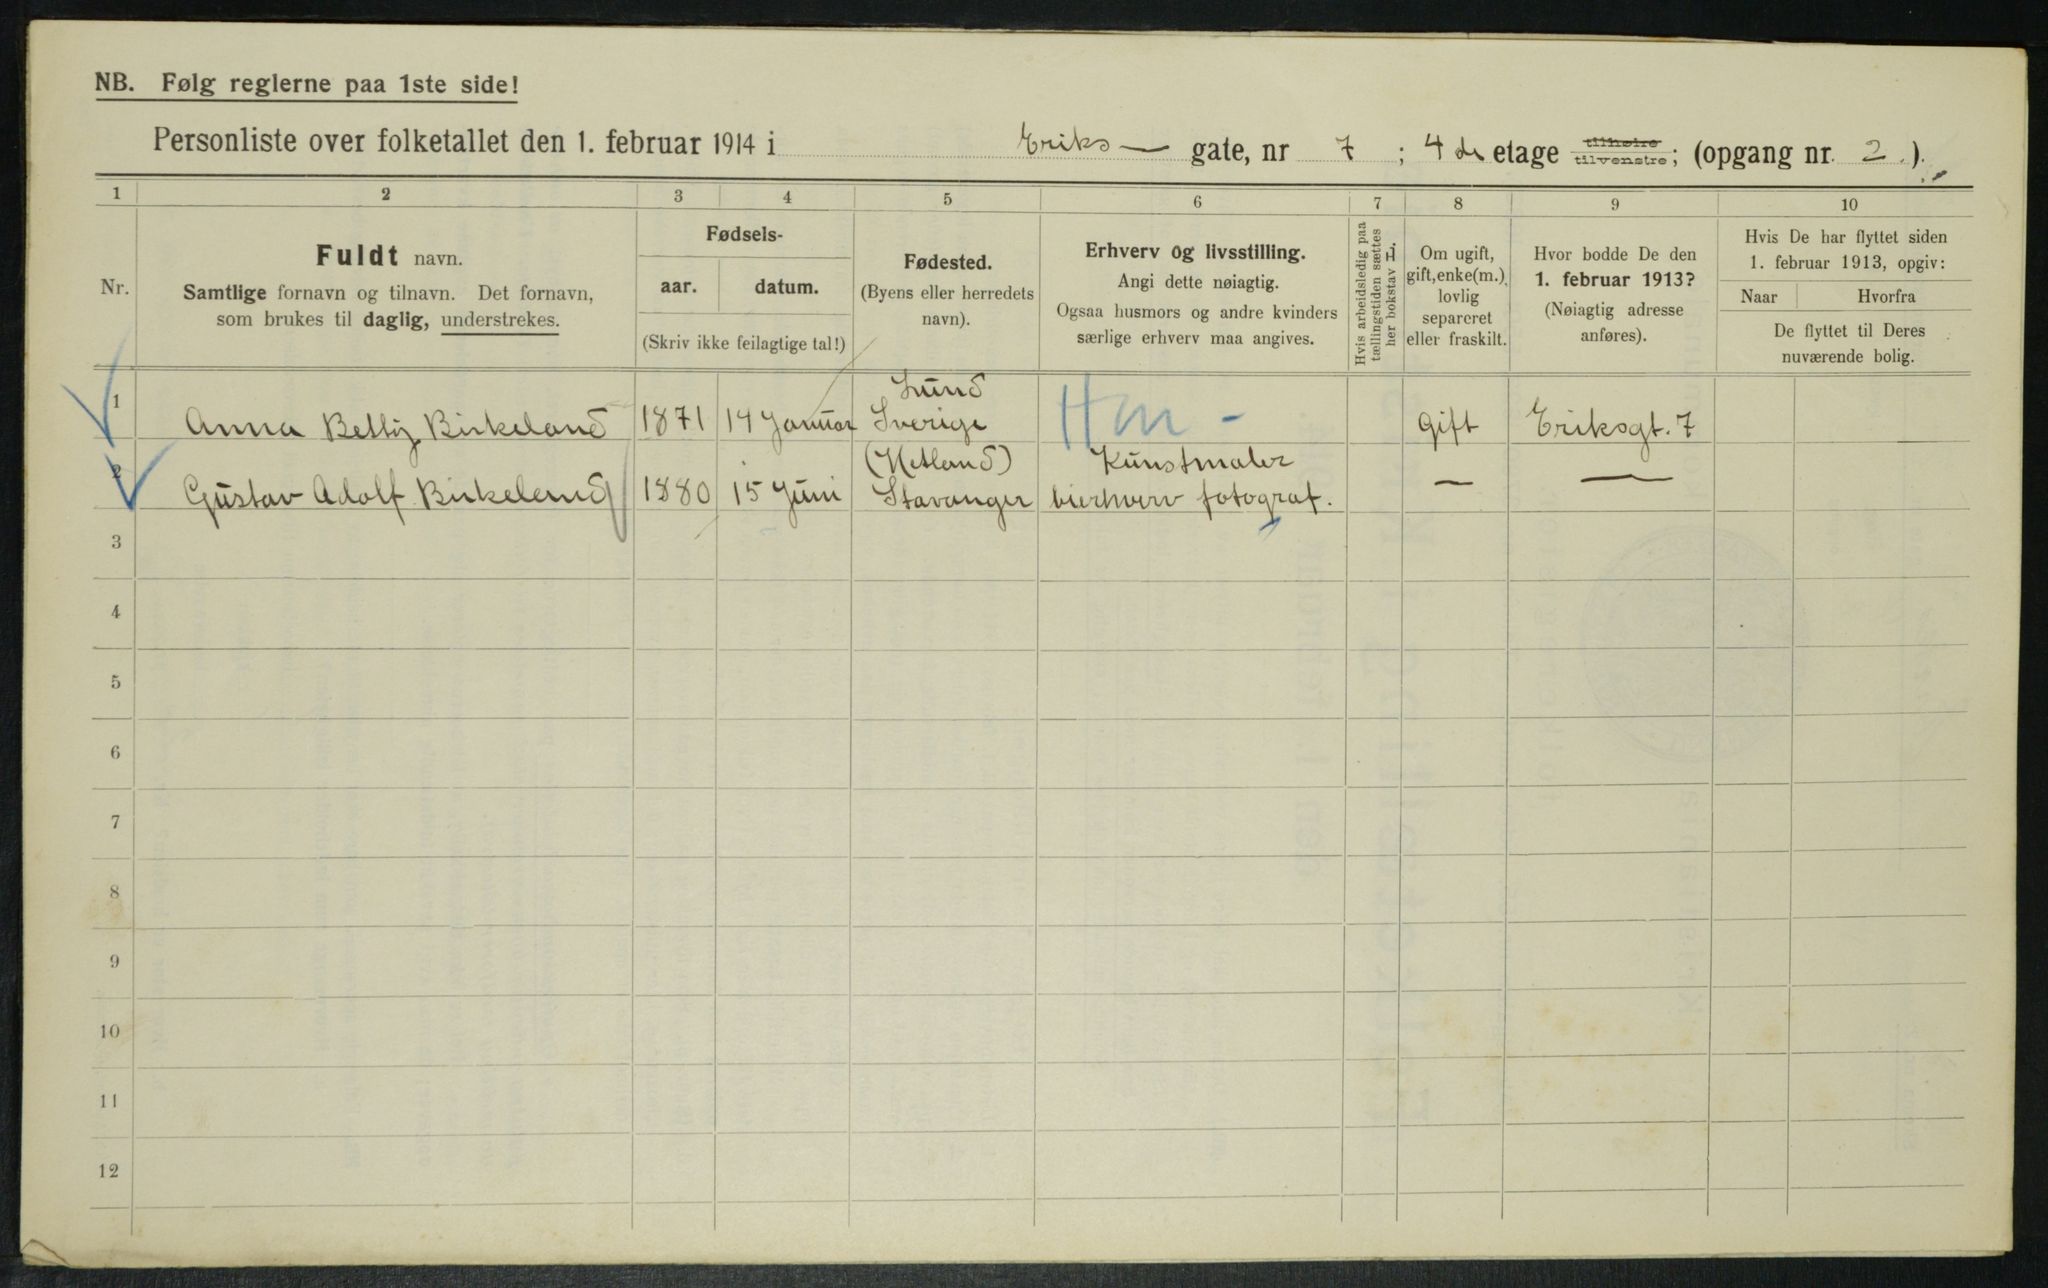 NB. Følg reglerne paa 1ste side!
Personliste over folketallet den 1. februar 1914 i Eriks — gate, nr 7 ; 4de etage tilhøire tilvenstre; (opgang nr. 2.).
1 2 3 4 5 6 7 8 9 10
Nr.
Fuldt navn.
Samtlige fornavn og tilnavn. Det fornavn,
som brukes til daglig, understrekes.
Fødsels-
aar. datum.
(Skriv ikke feilagtige tal!)
Fødested.
(Byens eller herredets
navn).
Erhverv og livsstilling.
Angi dette nøiagtig.
Ogsaa husmors og andre kvinders
særlige erhverv maa angives.
Hvis arbeidsledig paa
tællingstiden sættes
her bokstav L.
Om ugift,
gift, enke(m.),
lovlig
separeret
eller fraskilt.
Hvor bodde De den
1. februar 1913?
(Nøiagtig adresse
anføres).
Hvis De har flyttet siden
1. februar 1913, opgiv:
Naar Hvorfra
De flyttet til Deres
nuværende bolig.
Lund
1 Anna Betty Birkeland 1871 14 Januar Sverige Hm - Gift Eriksgt. 7
(Hetland) Kunstmaler
2 Gustav Adolf Birkeland 1880 15 Juni Stavanger bierhverv fotograf. — —
3
4
5
6
7
8
9
10
11
12